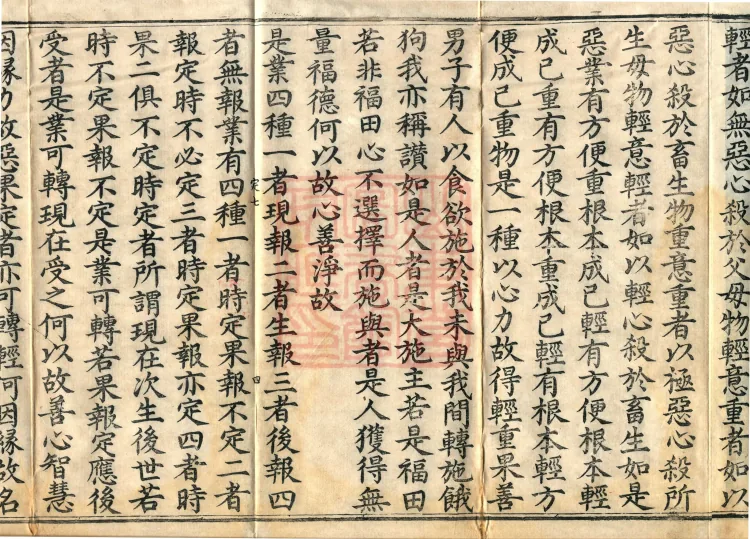 輕者如無惡心殺於父母物輕意重者如以
惡心殺於畜生物重意重者以極惡心殺所
生母物輕意輕者如以輕心殺於畜生如是
惡業有方便重根本成已輕有方便根本輕
成已重有方便根本重成已輕有根本輕方
便成已重物是一種以心力故得輕重果善
男子有人以食欲施於我未與我間轉施餓
狗我亦稱讚如是人者是大施主若是福田
若非福田心不選擇而施與者是人獲得無
量福德何以故心善淨故
是業四種一者現報二者生報三者後報四
定七 四
者無報業有四種一者時定果報不定二者
報定時不必定三者時定果報亦定四者時
果二俱不定時定者所謂現在次生後世若
時不定果報不定是業可轉若果報定應後
受者是業可轉現在受之何以故善心智慧
因緣力故惡果定者亦可轉輕何因緣故名